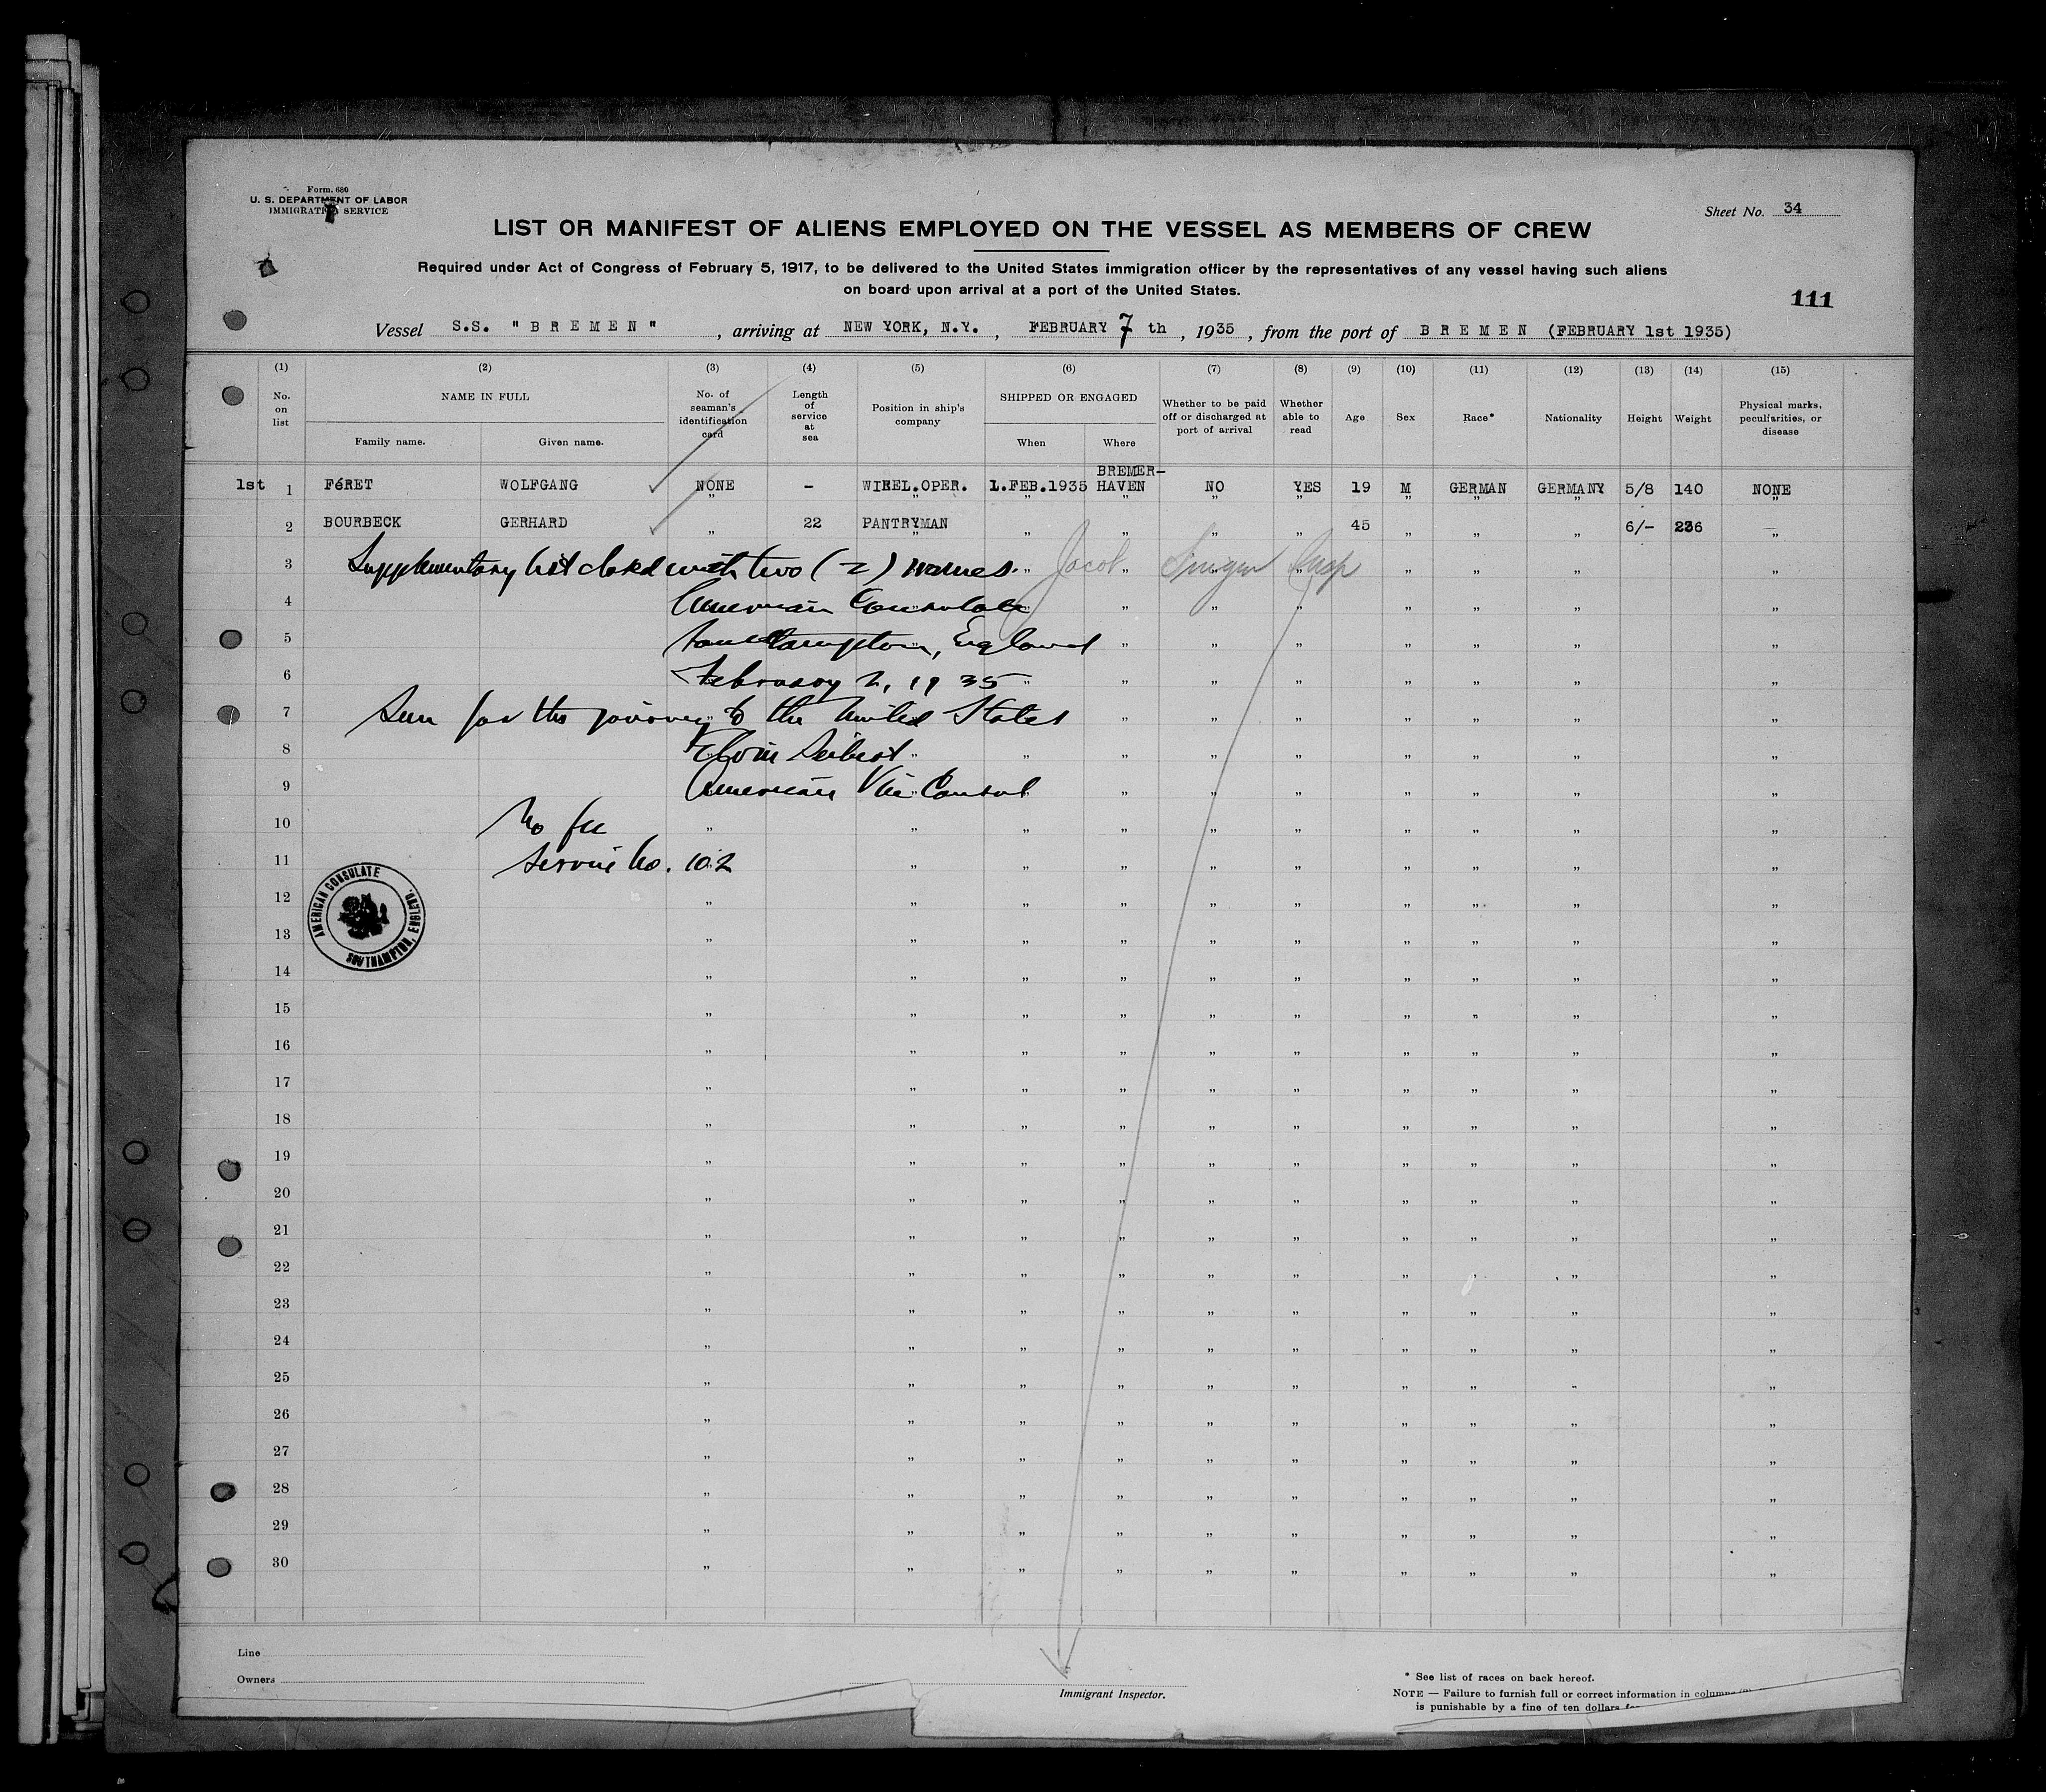 Form. 680
U. S. DEPARTMENT OF LABOR
IMMIGRATION SERVICE
Sheet No. 34
LIST OR MANIFEST OF ALIENS EMPLOYED ON THE VESSEL AS MEMBERS OF CREW
Required under Act of Congress of February 5, 1917, to be delivered to the United States immigration officer by the representatives of any vessel having such aliens
on board upon arrival at a port of the United States.
111
Vessel S.S. "BREMEN", arriving at NEW YORK, N.Y., FEBRUARY 7 th, 1935, from the port of BREMEN (FEBRUARY 1st 1935)
(1) (2) (3) (4) (5) (6) (7) (8) (9) (10) (11) (12) (13) (14) (15)
No. on list NAME IN FULL Family name. Given name. No. of seaman's identification card Length of service at sea Position in ship's company SHIPPED OR ENGAGED When Where Whether to be paid off or discharged at port of arrival Whether able to read Age Sex Race* Nationality Height Weight Physical marks, peculiarities, or disease
1st 1 FéRET WOLFGANG NONE - WIREL.OPER. 1.FEB.1935 BREMER-HAVEN NO YES 19 M GERMAN GERMANY 5/8 140 NONE
2 BOURBECK GERHARD " 22 PANTRYMAN " " " " 45 " " " 6/- 236
3 Supplementary list closed with two (2) names. Jacob Singer Insp
4 American Consulate
5 Southampton, England
6 February 2, 1935
7 Seen for the journey to the United States
8 Seibert
9 American Vice Consul
10 No fee
11 Service No. 102
AMERICAN CONSULATE
SOUTHAMPTON, ENGLAND.
12
13
14
15
16
17
18
19
20
21
22
23
24
25
26
27
28
29
30
Line
Owners
Immigrant Inspector.
* See list of races on back hereof.
NOTE — Failure to furnish full or correct information in columns
is punishable by a fine of ten dollars